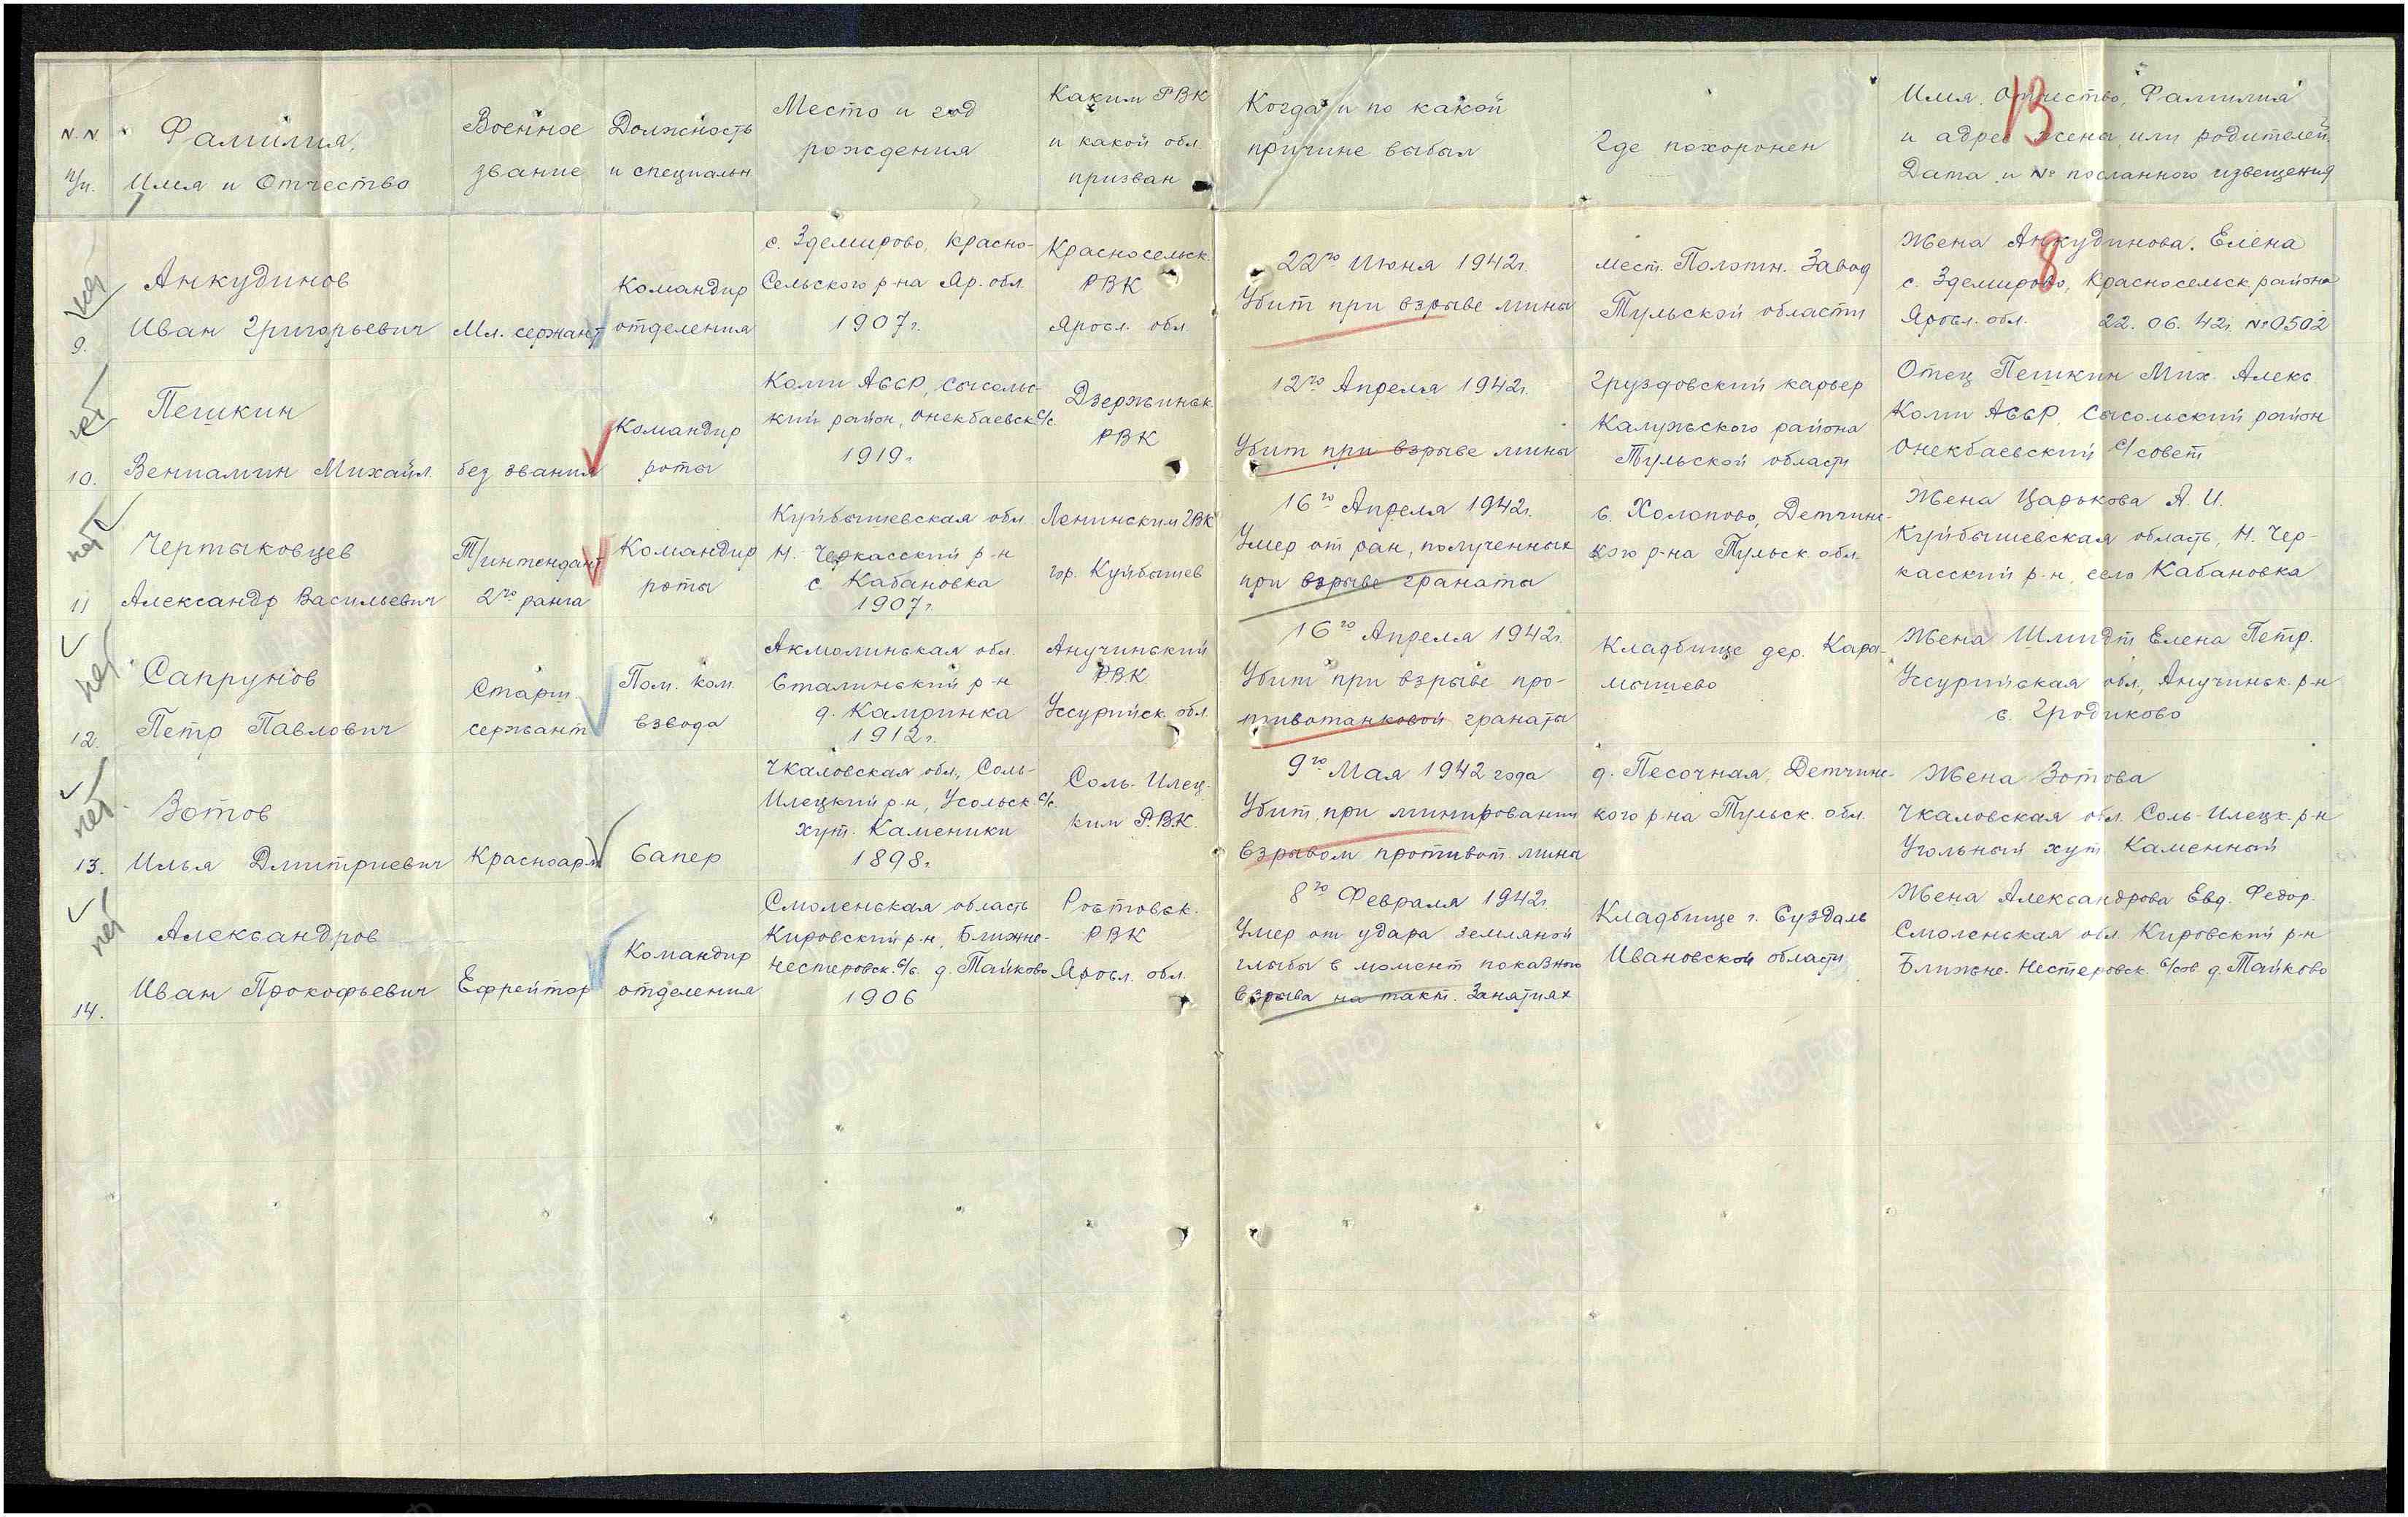 N.N. п/п.
Фамилия,
Имя и Отчество
Военное
звание
Должность
и специальн
Место и год
рождения
Каким РВК
и какой обл.
призван
Когда и по какой
причине выбыл
Где похоронен
Имя, Отчество, Фамилия
и адрес жены или родителей.
Дата и № посланного извещения
13
8
нет
9.
Анкудинов
Иван Григорьевич
Мл. сержант
Командир
отделения
с. Здемирово, Красно-
Сельского р-на Яр. обл.
1907г.
Красносельск.
РВК
Яросл. обл.
22го Июня 1942г.
Убит при взрыве мины
мест. Полотн. Завод
Тульской области
Жена Анкудинова. Елена
с. Здемирово, Красносельск. района
Яросл. обл. 22. 06. 42г. №0502
нет
10.
Пешкин
Вениамин Михайл.
без звания
Командир
роты
Коми АССР, Сысоль-
кий район, Онекбаевск с/с.
1919г.
Дзержинск.
РВК
12го Апреля 1942г.
Убит при взрыве мины
Груздовский карьер
Калужского района
Тульской области
Отец Пешкин Мих. Алекс.
Коми АССР, Сысольский район
Онекбаевский с/совет
нет
11
Чертыковцев
Александр Васильевич
Т/интендант
2го ранга
Командир
роты
Куйбышевская обл.
Н.-Черкасский р-н
с. Кабановка
1907г.
Ленинским ГВК
гор. Куйбышев
16го Апреля 1942г.
Умер от ран, полученных
при взрыве гранаты
с. Холопово, Детчинс-
кого р-на Тульск. обл.
Жена Царькова А. И.
Куйбышевская область, Н. Чер-
касский р-н, село Кабановка
нет
12.
Сапрунов
Петр Павлович
Старш.
сержант
Пом. ком.
взвода
Акмолинская обл.
Сталинский р-н
д. Камринка
1912г.
Анучинский
РВК
Уссурийск. обл.
16го Апреля 1942г.
Убит при взрыве про-
тивотанковой гранаты
Кладбище дер. Кара-
мышево
Жена Шмидт Елена Петр.
Уссурийская обл., Анучинск. р-н
с. Гродиково
нет
13.
Зотов
Илья Дмитриевич
Красноарм
Сапер
Чкаловская обл, Соль-
Илецкий р-н, Усольск с/с.
хут. Каменики
1898г.
Соль-Илец-
ким РВК.
9го Мая 1942 года
Убит, при минировании
взрывом противот. мины
д. Песочная, Детчинс-
кого р-на Тульск. обл.
Жена Зотова
Чкаловская обл. Соль-Илецк. р-н
Угольный хут. Каменный
нет
14.
Александров
Иван Прокофьевич
Ефрейтор
Командир
отделения
Смоленская область
Кировский р-н, Ближне-
Нестеровск. с/с. д. Тайково
1906
Ростовск.
РВК
Яросл. обл.
8го Февраля 1942г.
Умер от удара земляной
глыбы в момент показного
взрыва на такт. Занятиях
Кладбище г. Суздаль
Ивановской области
Жена Александрова Евд. Федор.
Смоленская обл. Кировский р-н
Ближне-Нестеровск. с/сов. д. Тайково
ЦАМО РФ